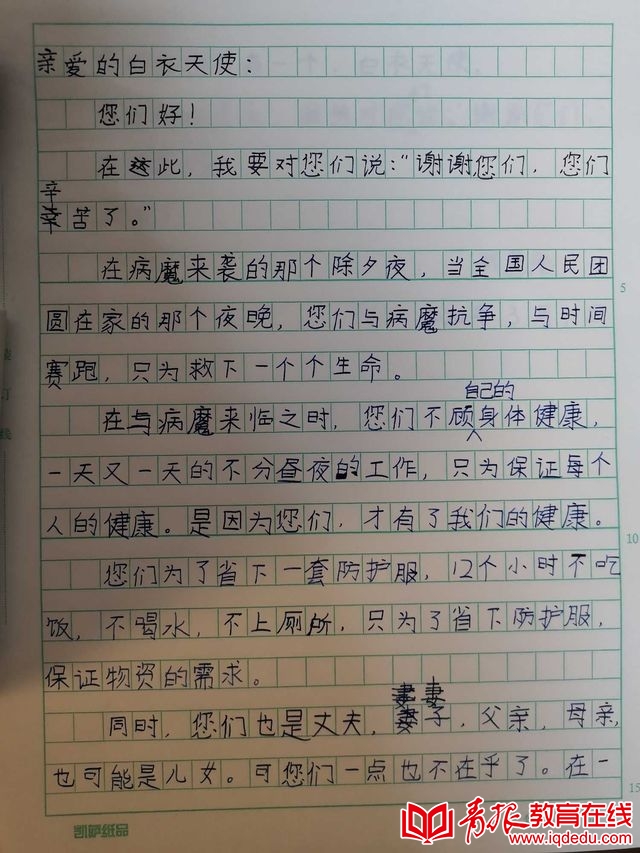 亲爱的白衣天使:
您们好!
在此,我要对您们说:“谢谢您们,您们
辛苦了。”
在病魔来袭的那个除夕夜,当全国人民团
圆在家的那个夜晚,您们与病魔抗争,与时间
赛跑,只为救下一个个生命。
在与病魔来临之时,您们不顾自己的身体健康,
一天又一天的不分昼夜的工作,只为保证每个
人的健康。是因为您们,才有了我们的健康。
您们为了省下一套防护服,12个小时不吃
饭,不喝水,不上厕所,只为了省下防护服,
保证物资的需求。
同时,您们也是丈夫,妻子,父亲,母亲,
也可能是儿女。可您们一点也不在乎了。在一
5
10
15
订
线
凯萨纸品
青报教育在线
www.iqdedu.com